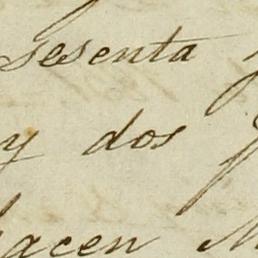 sesenta
y dos
hacen